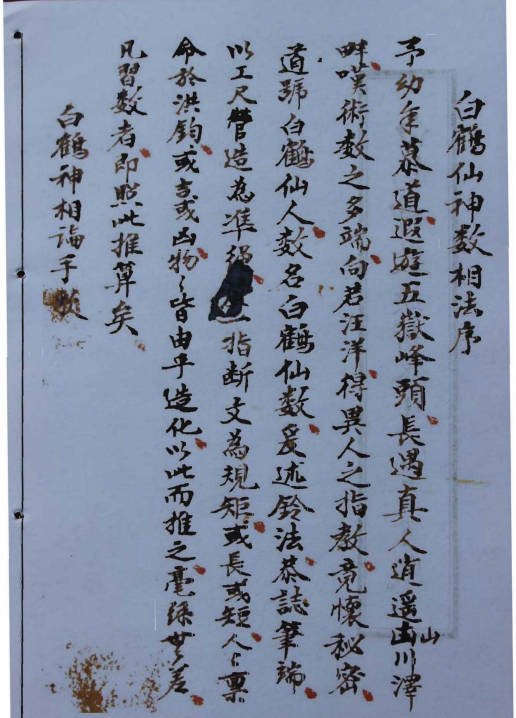 白鶴仙神数相法序
予幼年慕道遐遊五嶽峰頭長遇真人逍遥山川澤
畔嘆術数之多端向若汪洋得異人之指教竟懷秘密
道號白鶴仙人数名白鶴仙数爰述鈴法恭誌筆端
以工尺營造為準繩 指断文為規矩或長或短人〻禀
命於洪鈞或吉或凶物〻皆由乎造化以此而推之毫絲無差
凡習数者即照此推算矣
白鶴神相論手